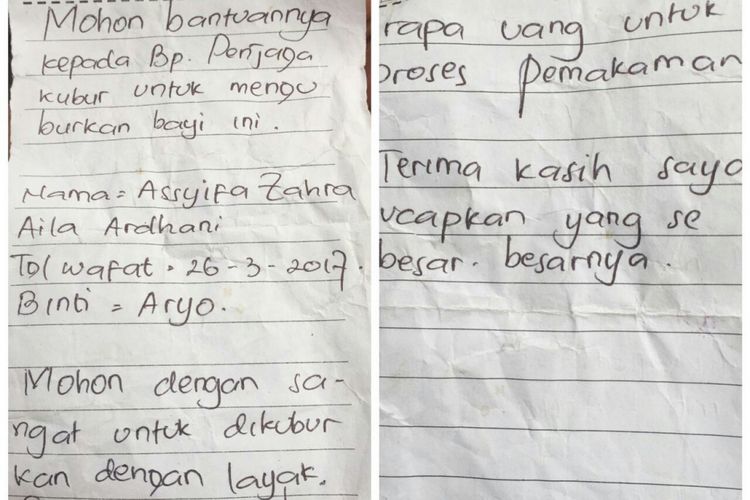 Mohon bantuannya
kepada Bp. Penjaga
kubur untuk mengu
burkan bayi ini.
Nama = Assyifa Zahra
Aila Ardhani
Tgl wafat = 26-3-2017.
Binti = Aryo.
Mohon dengan sa-
ngat untuk dikubur
kan dengan layak.
rapa uang untuk
proses pemakaman
Terima kasih saya
ucapkan yang se
besar-besarnya.